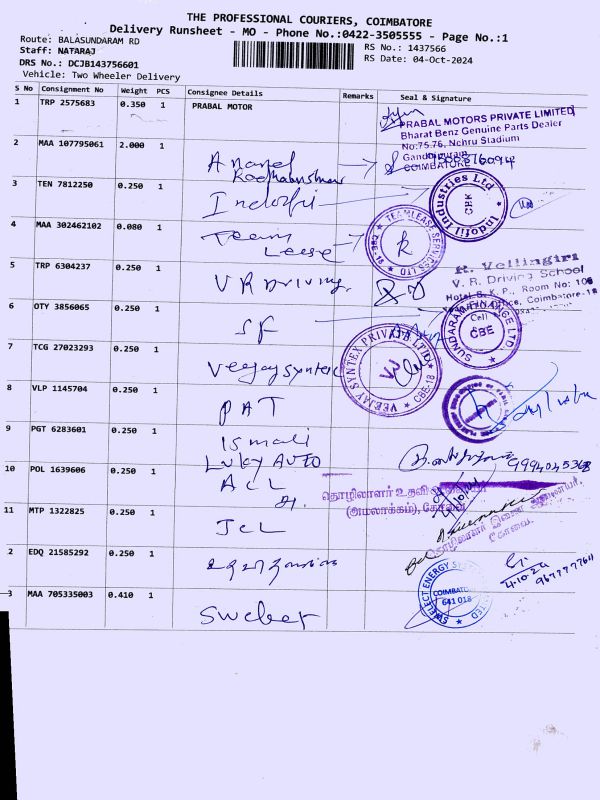 THE PROFESSIONAL COURIERS, COIMBATORE
Delivery Runsheet - MO - Phone No.:0422-3505555 - Page No.:1
Route: BALASUNDARAM RD
RS No.: 1437566
Staff: NATARAJ
RS Date: 04-Oct-2024
DRS No.: DCJB143756601
Vehicle: Two Wheeler Delivery
S No Consignment No Weight PCS Consignee Details Remarks Seal & Signature
1 TRP 2575683 0.350 1 PRABAL MOTOR
PRABAL MOTORS PRIVATE LIMITED
Bharat Benz Genuine Parts Dealer
No:75,76, Nehru Stadium
COIMBATORE
2 MAA 107795061 2.000 1 Anand
Radhakrishnan
3 TEN 7812250 0.250 1 Indofil
Indofil Industries Ltd
CBE
4 MAA 302462102 0.080 1 Team
Lease
TEAMLEASE SERVICES LTD
CBE-18
5 TRP 6304237 0.250 1 VR Driving.
R. Vellingiri
V. R. Driving School
Hotel S. K. P., Room No: 106
Coimbatore-18
6 OTY 3856065 0.250 1 SF
SUNDARAM FINANCE LTD
Cell
CBE
7 TCG 27023293 0.250 1 Veejay syntex
VEEJAY SYNTEX PRIVATE LTD.
CBE-18
8 VLP 1145704 0.250 1 PAT
9 PGT 6283601 0.250 1 Ismail
Luky AUTO
10 POL 1639606 0.250 1 ACL
தொழிலாளர் உதவி
(அமலாக்கம்), கோவை
11 MTP 1322825 0.250 1 JCL
தொழிலாளர் இணை ஆணையர்,
கோவை.
2 EDQ 21585292 0.250 1
4-10-24
3 MAA 705335003 0.410 1 Swelect
SWELECT ENERGY SYSTEMS LIMITED
COIMBATORE
641 018